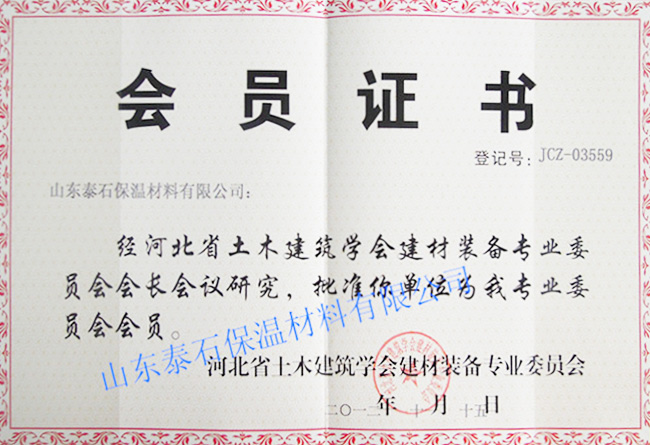 会员证书
登记号：JCZ-03559
山东泰石保温材料有限公司：
经河北省土木建筑学会建材装备专业委
员会会长会议研究，批准你单位为我专业委
员会会员。
山东泰石保温材料有限公司
河北省土木建筑学会建材装备专业委员会
二〇一二年十月十五日